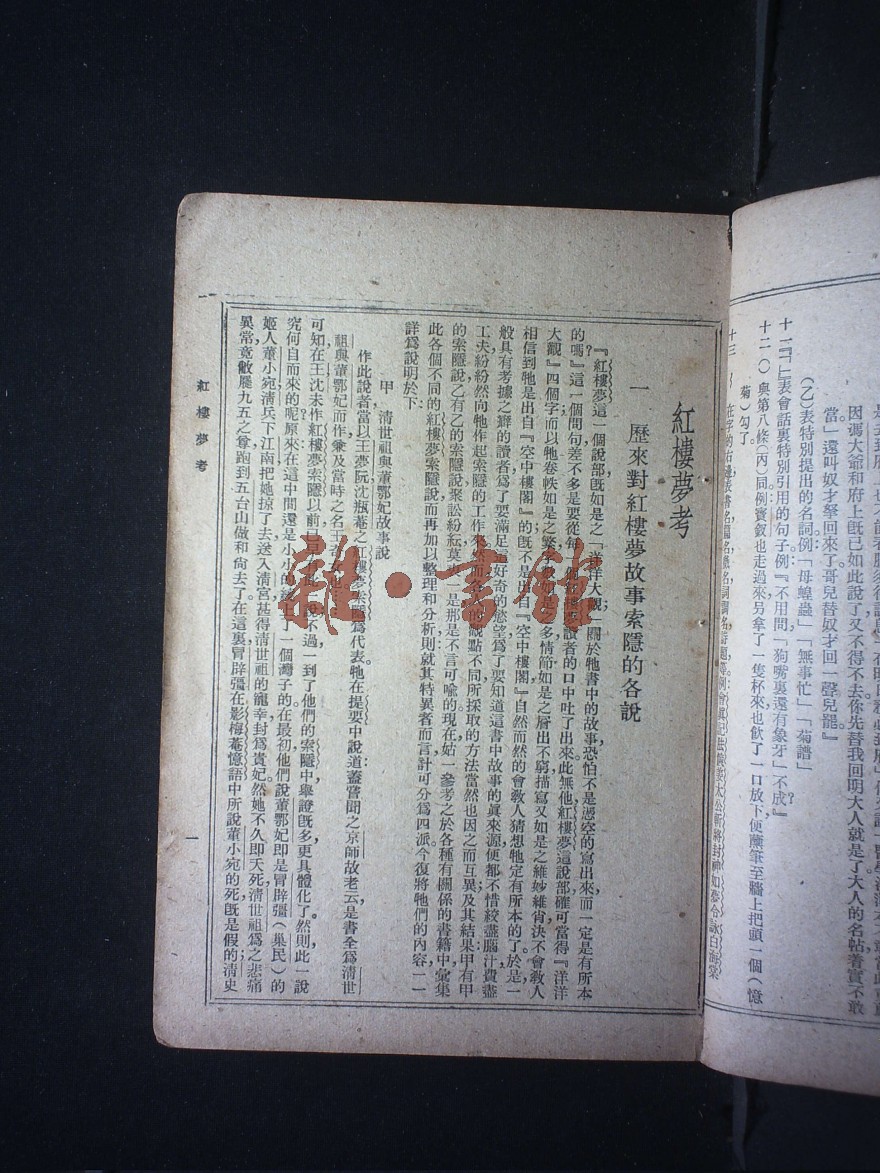 十一『「」表會話裏特別引用的句子例『不用問「狗嘴裏還有象牙」不成？』
十二（）與第八條（丙）同例寶釵也走過來另拿了一隻杯來也飲了一口放下便蘸筆至牆上把頭一個（憶
菊）勾了。
（乙）表特別提出的名詞例「母蝗蟲」「無事忙」「菊譜」
當」還叫奴才拏回來了哥兒替奴才回一聲兒罷』
因馮大爺和府上旣已如此說了又不得不去你先替我回明大人就是了大人的名帖着實不敢
紅樓夢考
一 歷來對紅樓夢故事索隱的各說
『紅樓夢這一個說部旣如是之「洋洋大觀」關於牠書中的故事恐怕不是憑空的寫出來，而一定是有所本
的嗎？』這一個問句差不多是要從每一個紅樓夢讀者的口中吐了出來。此無他，紅樓夢這說部確可當得『洋洋
大觀』四個字，而以牠卷帙如是之繁，字數如是之多，情節如是之層出不窮，描寫又如是之維妙維肖，決不會敎人
相信到牠是出自『空中樓閣』的；旣不是出自『空中樓閣』，自然而然的會敎人猜想牠定有所本的了。於是一
般具有考據之癖的讀者，爲了要滿足
好奇的慾望，爲了要知道這書中故事的眞來源，便都不惜絞盡腦汁，費盡
工夫，紛紛然向牠作起索隱的工作來
觀點不同，所採取的方法當然也因之而互異，及其結果，甲有甲
的索隱說，乙有乙的索隱說，聚訟紛紜，莫
一是，那是不言可喻的。現在姑一參考之於各種有關係的書籍中，彙集
此各個不同的紅樓夢索隱說，而再加以整理和分析，則就其特異者而言，計可分爲四派，今復將牠們的內容一一
詳爲說明於下：
甲 清世祖與董鄂妃故事說
作此說者，當以王夢阮沈瓶菴之紅樓夢索隱爲代表。牠在提要中說道：蓋嘗聞之京師故老云，是書全爲淸世
祖與董鄂妃而作，兼及當時之名王奇女也
可知在王沈未作紅樓夢索隱以前，已
說，不過一到了他們的索隱中，舉證旣多，更具體化了。然則此一說
究何自而來的呢？原來在這中間還是小小的
了一個灣子的。在最初，他們說董鄂妃即是冒辟彊（巢民）的
姬人董小宛，淸兵下江南，把她掠了去，送入淸宮，甚得淸世祖的寵幸，封爲貴妃，然她不久即夭死，淸世祖爲之悲痛
異常，竟敝屣九五之尊，跑到五台山做和尙去了。在這裏，冒辟彊在影梅菴憶語中所說董小宛的死旣是假的，淸史
紅樓夢考
一
雜·書館